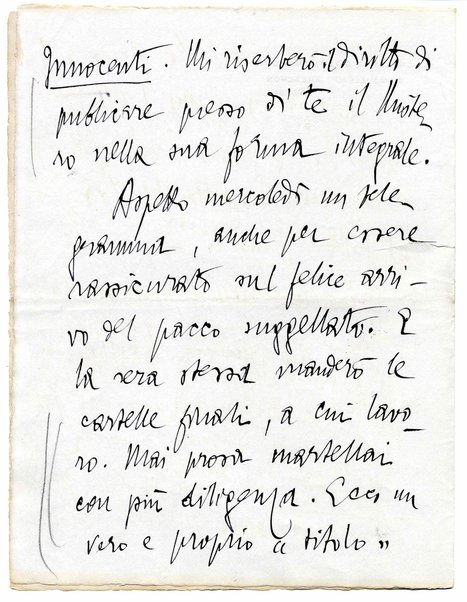 Innocenti. Mi riserberò il diritto di
publicare presso di te il Miste-
ro nella sua forma integrale.
Aspetto mercoledì un tele-
gramma, anche per essere
rassicurato sul felice arri-
vo del pacco suggellato. E
la sera stessa manderò le
cartelle finali, a cui lavo-
ro. Mai prosa martellai
con più diligenza. Ecco un
vero e proprio « titolo »